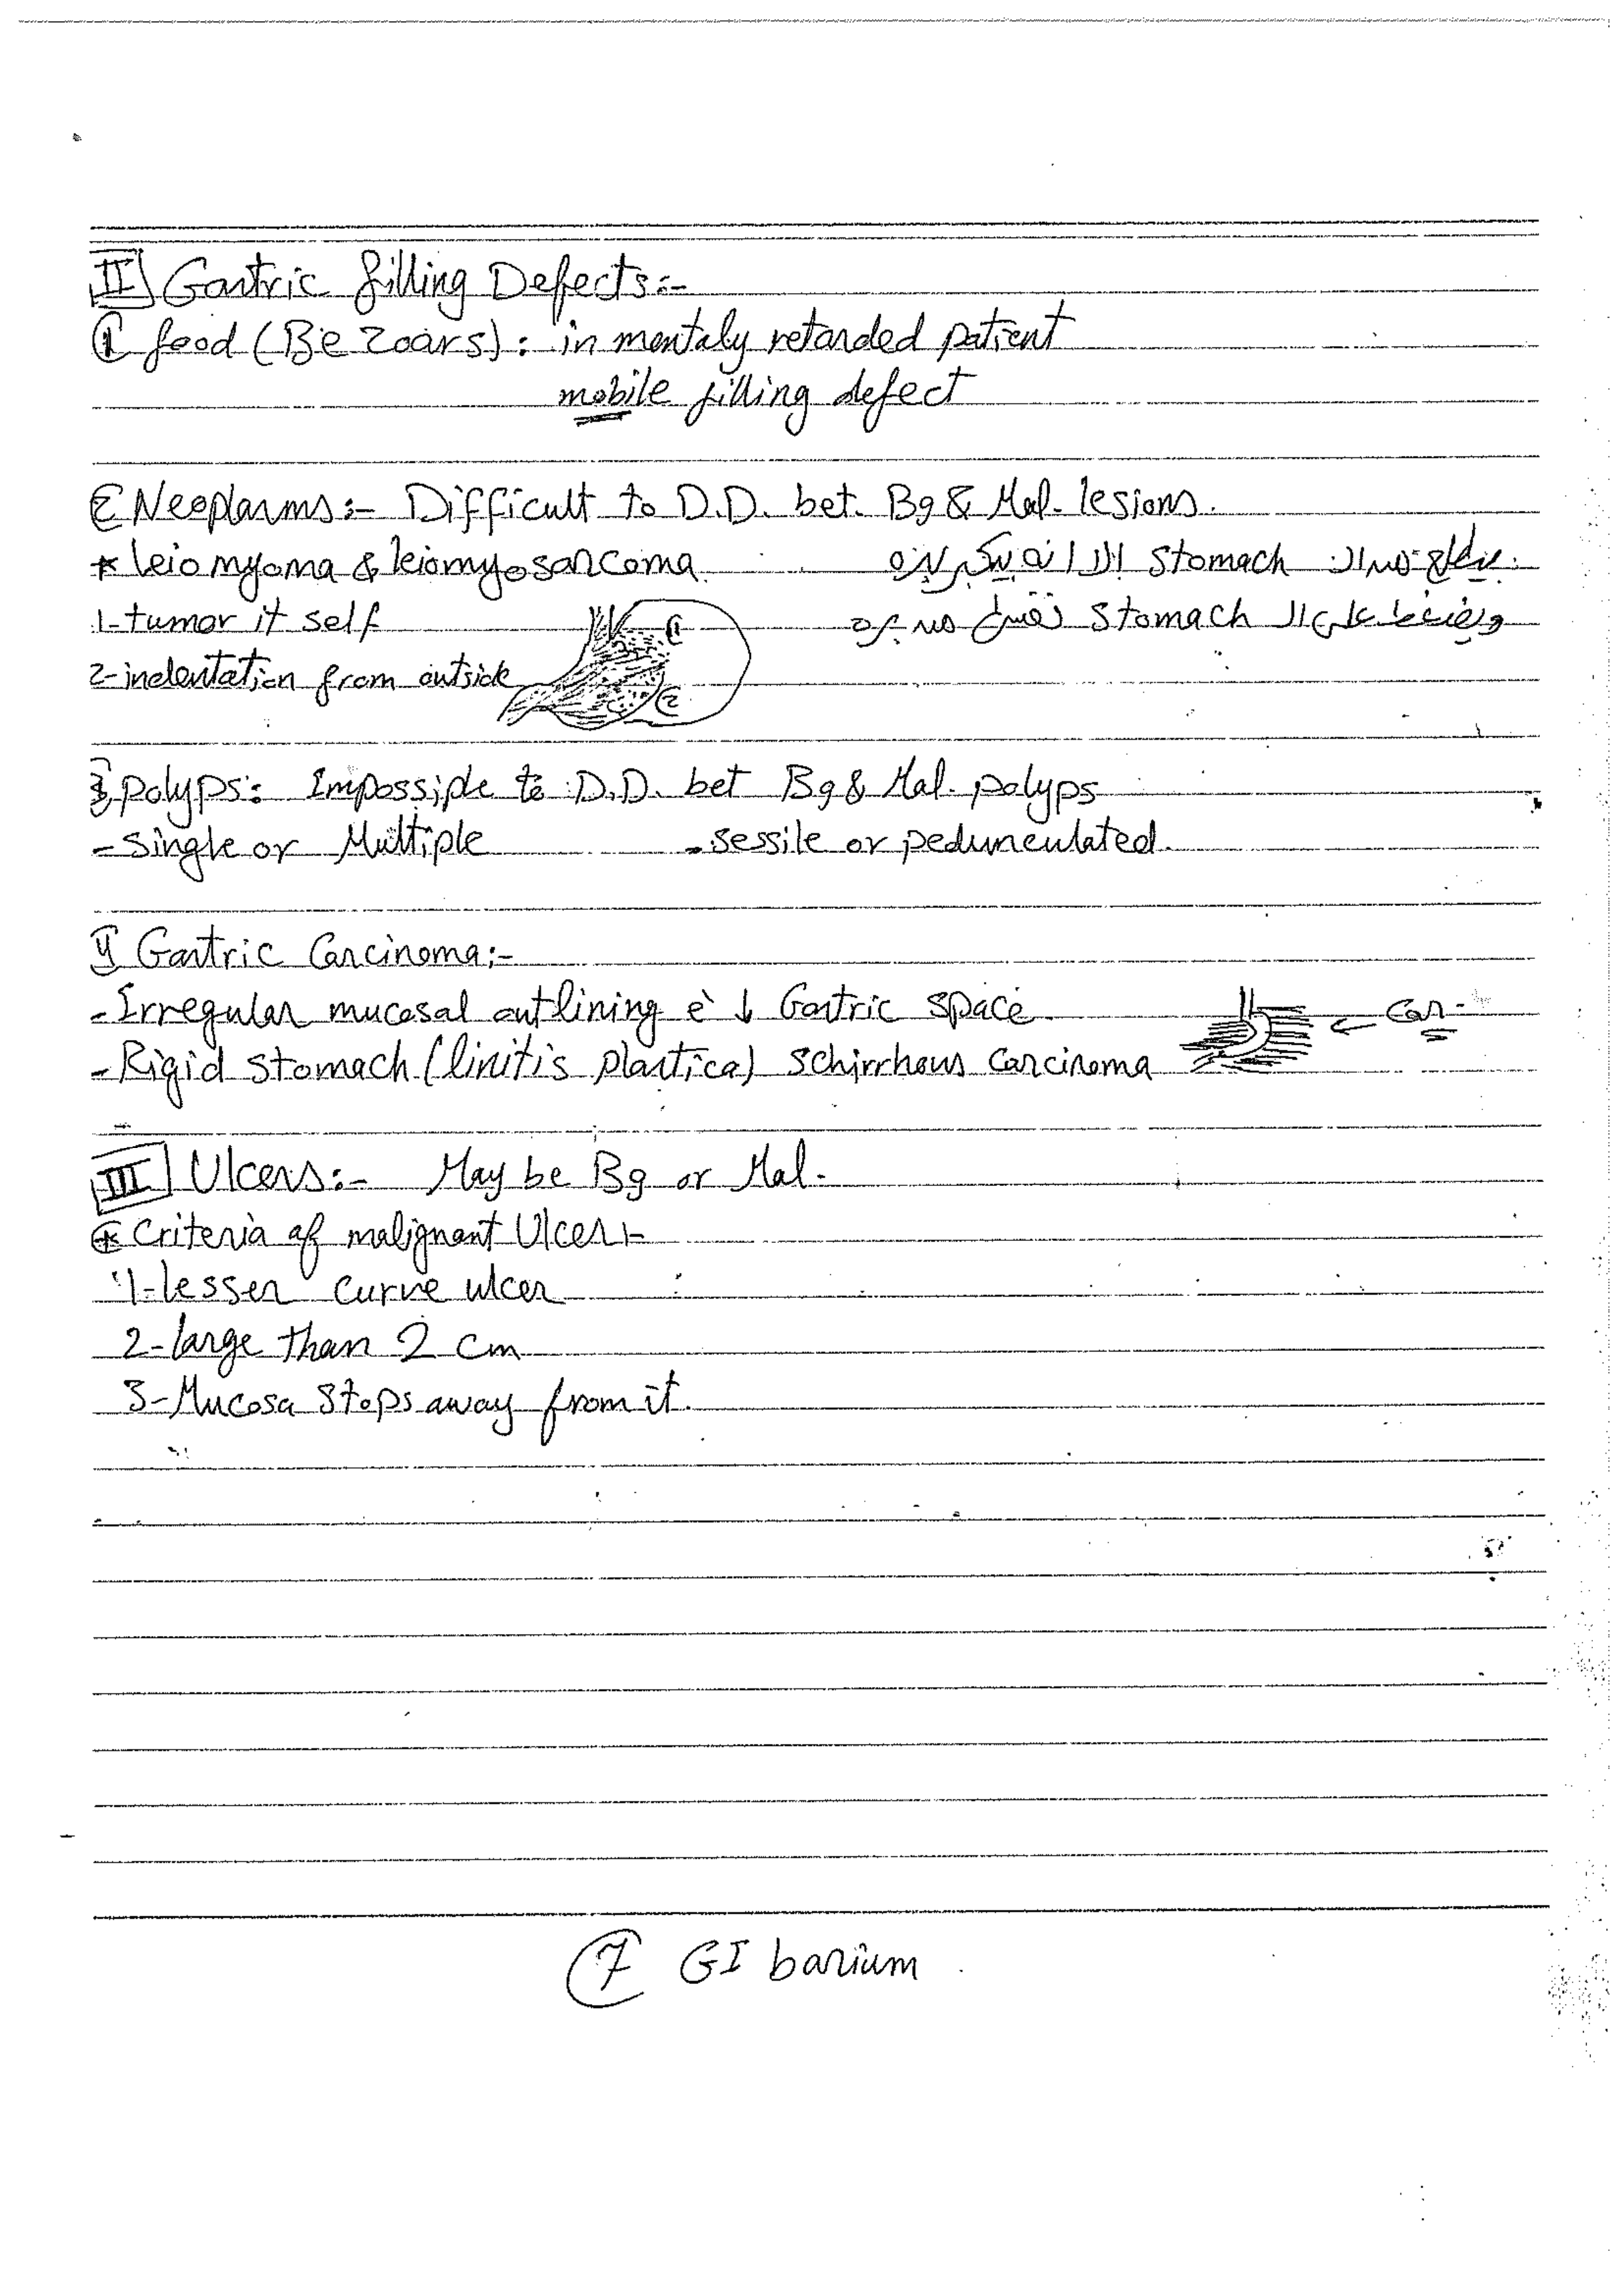 II Gastric filling Defects:-
① food (Bezoars): in mentaly retarded patient
mobile filling defect
② Neoplasms:- Difficult to D.D. bet. Bg & Mal. lesions.
* leiomyoma & leiomyosarcoma
بيطلع من ال stomach
1- tumor it self
وبيضغط على ال stomach نفسها من بره
2- indentation from outside
① ②
3 polyps: Impossiple to D.D. bet Bg & Mal. polyps
- Single or Multiple - sessile or pedunculated.
4 Gastric Carcinoma:-
- Irregular mucosal outlining è ↓ Gastric space.
← Car-
- Rigid stomach (linitis plastica) schirrhous carcinoma
III Ulcers:- May be Bg or Mal.
* Criteria of malignant Ulcer:-
1- lesser curve ulcer
2- large than 2 cm
3- Mucosa stops away from it.
7 GI barium